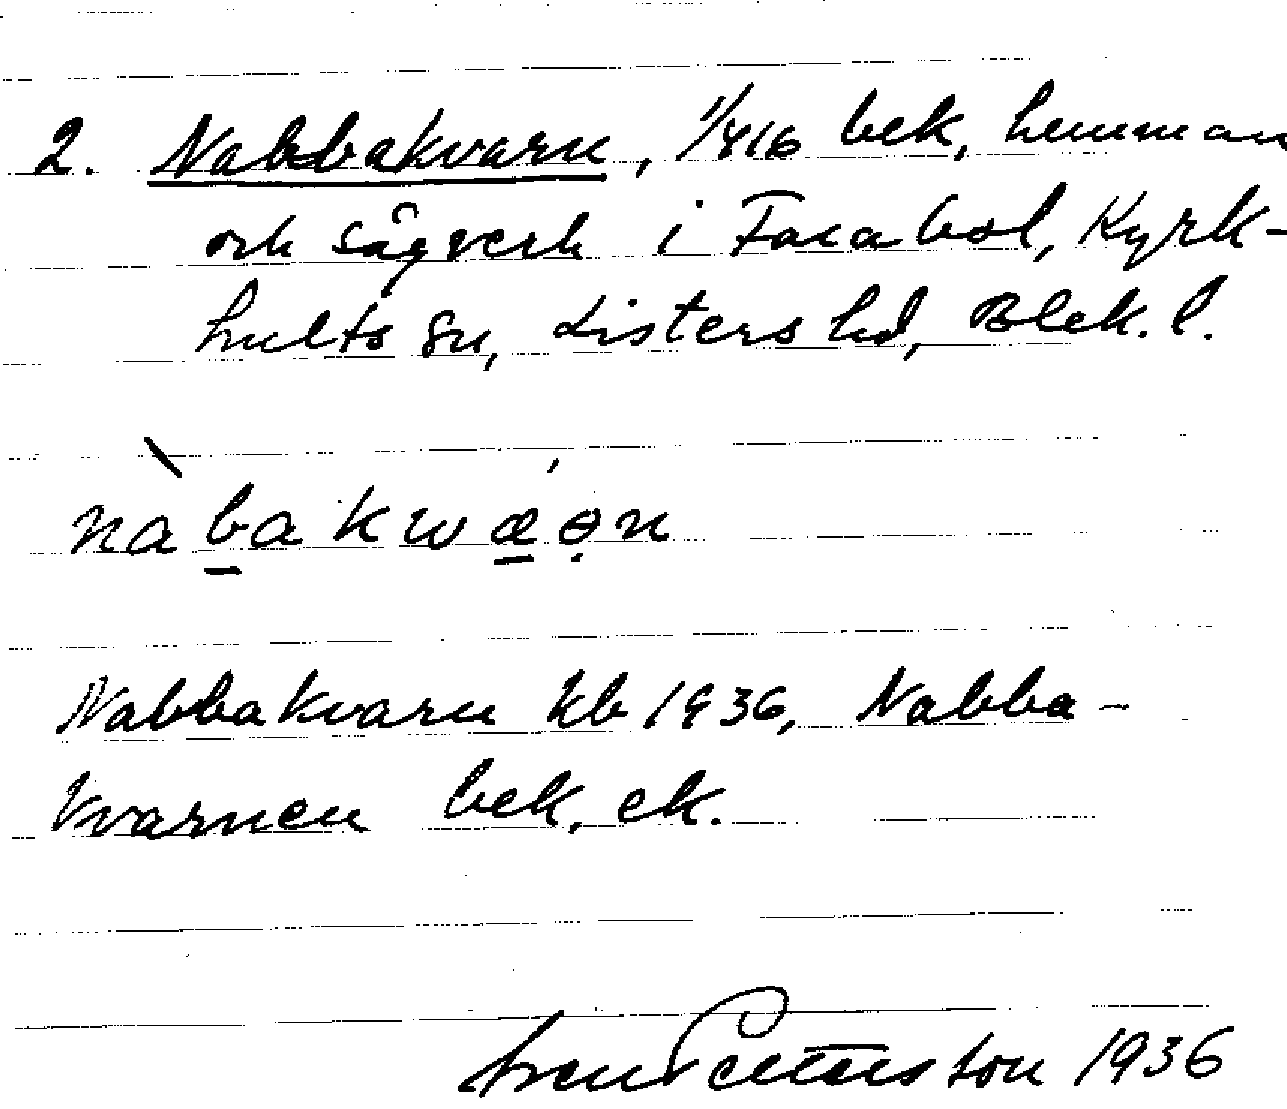 2. Nabbakvarn, 1/816 bek, hemman
och sågverk i Farabol, Kyrk-
hults sn, Listers hd, Blek. l.
nàbakwǽən
Nabbakvarn kb 1936, Nabba-
kvarnen bek, ek.
Sven Pettersson 1936